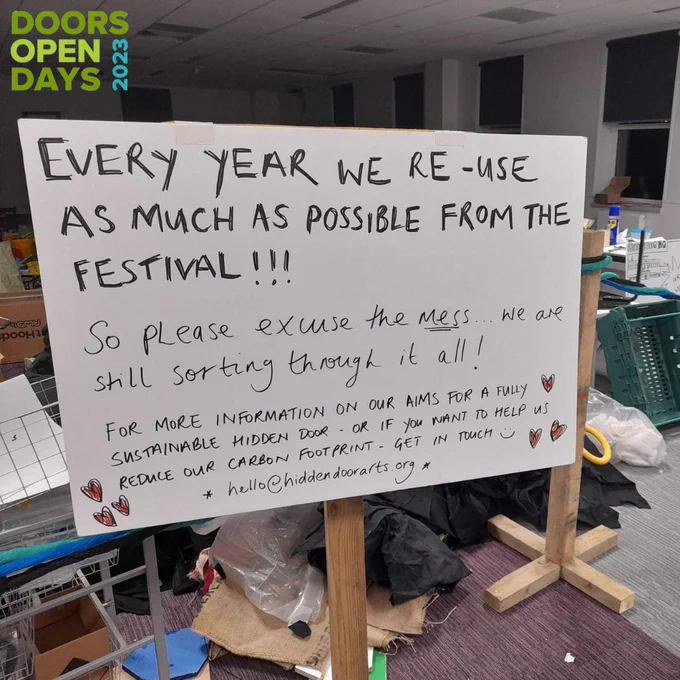 DOORS
OPEN
DAYS 2023
EVERY YEAR WE RE-USE
AS MUCH AS POSSIBLE FROM THE
FESTIVAL!!!
So please excuse the mess... we are
still sorting through it all!
FOR MORE INFORMATION ON OUR AIMS FOR A FULLY
SUSTAINABLE HIDDEN DOOR - OR IF YOU WANT TO HELP US
REDUCE OUR CARBON FOOTPRINT - GET IN TOUCH
* hello@hiddendoorarts.org *